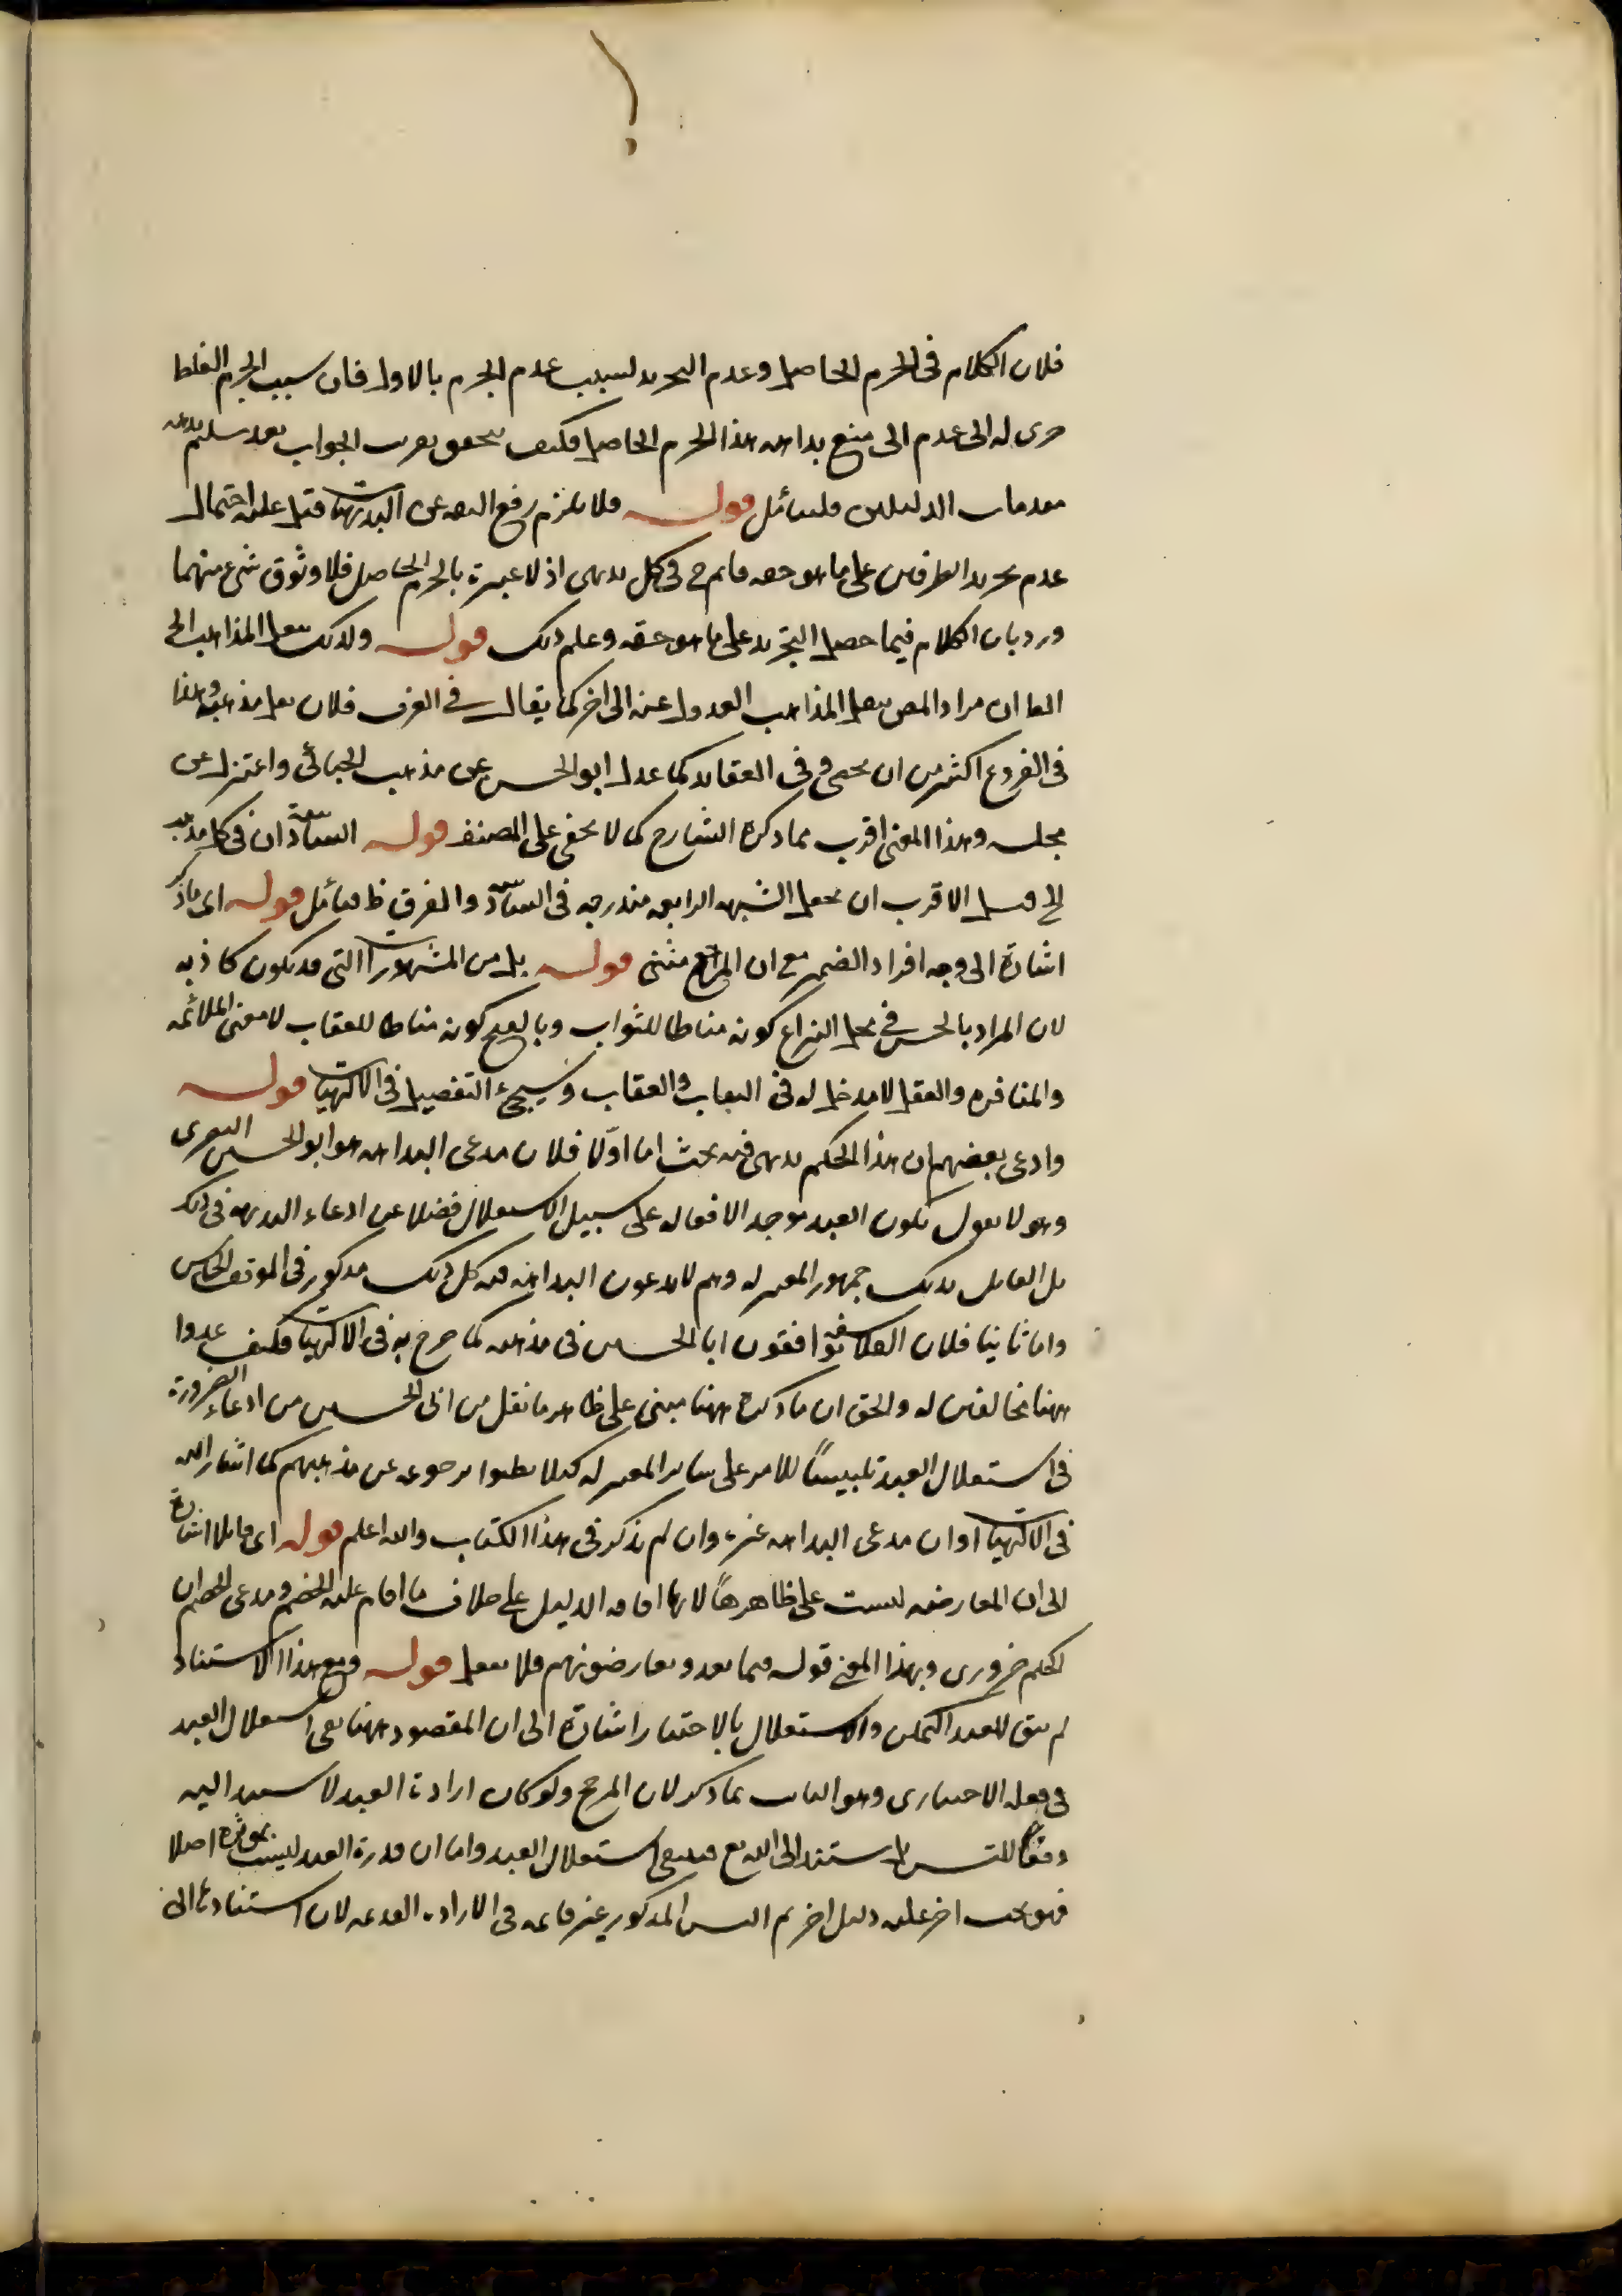 فلان الكلام فى الجزم الحاصل وعدم التجريد لسبب عدم الجزم بالاول فان سبب الجزم الغلط
الى عدم الى منع بداهه هذا الجزم الحاصل فكيف يتحقق الجواب بعد تسليم
مقدمات الدليلين فليتأمل قوله فلا يلزم رفع الثقه عن البديهيات قيل عليه احتمال
عدم تجريد الطرفين على ما هو حقه قائم ح فى كل بديهى اذ لا عبرة بالجزم الحاصل فلا وثوق بشئ منهما
ورد بان الكلام فيما حصل التجريد على ما هو حقه وعلم ذلك قوله ولذلك المذاهب الخ
ان مراد المص بنقل المذاهب العدول عنه الى اخر كما يقال فى العرف فلان نقل مذهبه وهذا
فى الفروع اكثر من ان يحصى وفى العقايد كما عدل ابو الحسن عن مذهب الجبائى واعتزل عن
مجلسه وهذا المعنى اقرب مما ذكره الشارح كما لا يخفى على المصنف قوله السادسة ان فى كل مذهب
الخ قيل الاقرب ان يجعل الشبهه الرابعه مندرجه فى السادسة والفرق ظ فتأمل قوله اى ما ذكر
اشارة الى وجه افراد الضمير مع ان المرجع مثنى قوله بل من المشهورات التى قد تكون كاذبه
لان المراد بالحسن فى محل النزاع كونه مناطا للثواب وبالقبح كونه مناطا للعقاب لا معنى الملائمه
والمنافره والعقل لا مدخل له فى الثواب والعقاب وسيجئ التفصيل فى الالهيات قوله
وادعى بعضهم ان هذا الحكم بديهى فيه بحث اما اولا فلان مدعى البداهه هو ابو الحسين البصرى
وهو لا يقول بكون العبد موجد الافعاله على سبيل الاستقلال فضلا عن ادعاء البديهه فى ذلك
بل القايل بذلك جمهور المعتزله وهم لا يدعون البداهه فيه كل ذلك مذكور فى الموقف الخامس
واما ثانيا فلان الفلاسفة يوافقون ابا الحسين فى مذهبه كما صرح به فى الالهيات فكيف عدوا
ههنا مخالفين له والحق ان ما ذكره ههنا مبنى على ظاهر ما نقل من ابى الحسين من ادعاء الضرورة
فى استقلال العبد تلبيسًا للامر على ساير المعتزله كيلا يظنوا برجوعه عن مذهبهم كما اشار اليه
فى الالهيات او ان مدعى البداهه غيره وان لم يذكر فى هذا الكتاب والله اعلم قوله اى قابلا اشارة
الى ان المعارضه ليست على ظاهرها لانها اقامه الدليل على خلاف ما اقام عليه الخصم ومدعى الخصم ان
الحكم ضرورى وبهذا المعنى قوله فيما بعد ويعارضونهم فلا تغفل قوله ومع هذا الاستناد
لم يبق للعبد التمكن والاستقلال بالاختيار اشارة الى ان المقصود ههنا نفى استقلال العبد
فى فعله الاختيارى وهو الثابت بما ذكر لان المرجح ولو كان ارادة العبد لا يستند اليه
دفعًا للتسلسل بل يستند الى الله تع فينتفى استقلال العبد واما ان قدرة العبد ليست بمؤثره اصلا
فهو بحث اخر عليه دليل اخر ثم المذكور غير فى الارادة القديمه لان استنادها الى